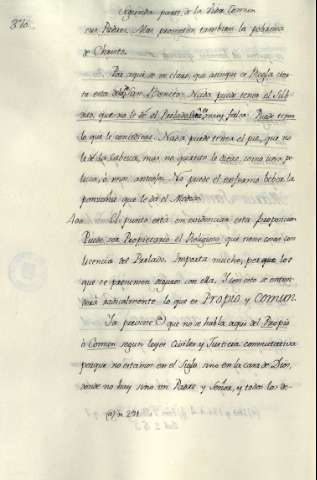 876.
Segunda parte de la Vida Comun
nus Patrem. Mas prometen tambien la pobreza
de Christo.
Por aqui se ve claro, que aunque es Regla cier-
ta esta de San Benito: Nada puede tener el Sub-
dito, que no le dé el Prelado: muy falsa: Puede tener
lo que le concediere. Nada puede tener el pie, que no
le dé la Cabeza, mas no quanto le diere, como una pe-
lucia, o una antojos. No puede el enfermo beber la
ponzoña que le da el Medico.
400. El punto está en evidenciar esta proposicion
Puede ser Propietario el Religioso que tiene cosas con
licencia del Prelado. Importa mucho, porque los
que se presumen siguen con ella. Y con esto se enten-
derá radicalmente lo que es Propio y comun.
Ya previne (a) que no se habla aqui del Propio
ò Comun segun leyes Civiles y Justicia commutativa
porque no estamos en el Siglo, sino en la casa de Dios,
donde no hay sino un Padre, y Señor, y todos los de-
(a) n. 291.